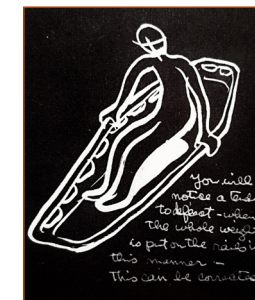 You will
notice a tend
to defeat - when
the whole weig
is put on the raids in
this manner -
This can be corrected